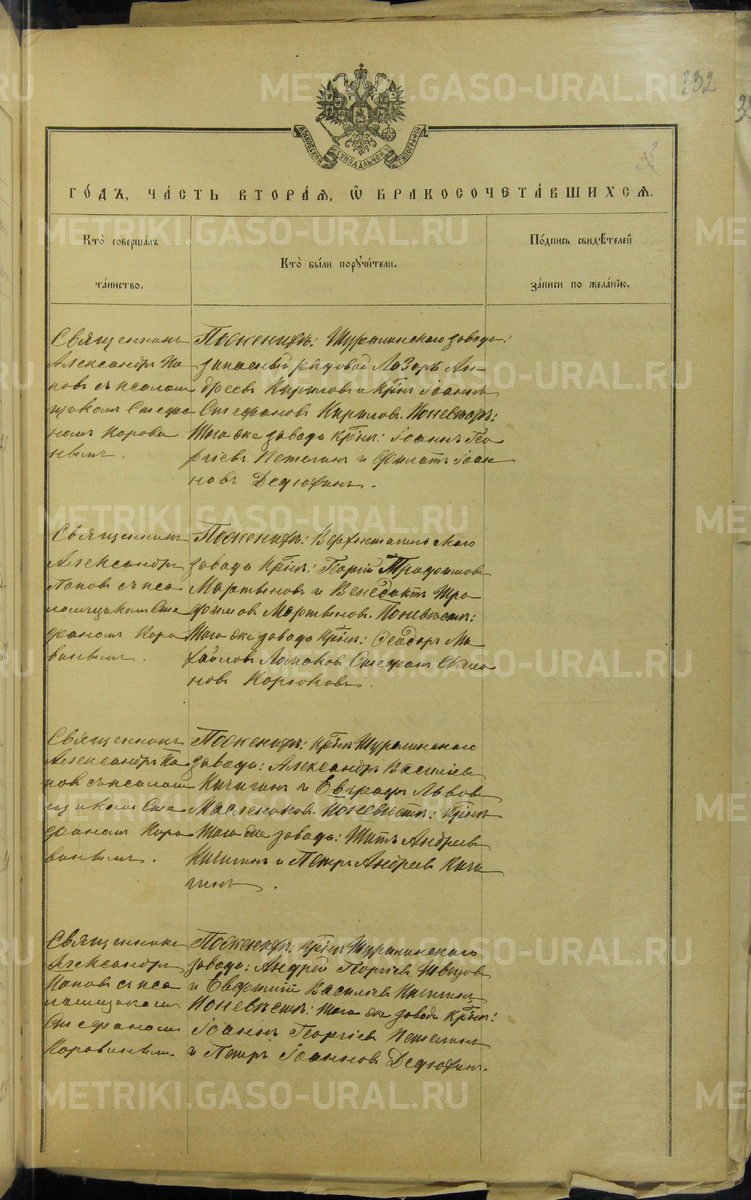 METRIKI.GASO-URAL.RU
232
МОСКОВСКОЙ СѴНОДАЛЬНОЙ ТИПОГРАФІИ
ГОДЪ, ЧАСТЬ ВТОРАЯ, Ѡ БРАКОСОЧЕТАВШИХСЯ.
Кто совершалъ
таинство.
Кто были поручители.
Подпись свидѣтелей
записи по желанію.
Священникъ
Александръ По
повъ съ псалом
щикомъ Стефа
номъ Корови
нымъ.
По женихѣ: Шуралинскаго завода
запасный рядовой Лазарь Ан-
дреевъ Кириловъ и Крнъ Іоаннъ
Стефановъ Кириловъ. По невѣстѣ:
Того же завода Крне: Іоаннъ Геор
гіевъ Петелинъ и Филатъ Іоан
новъ Дедюхинъ.
Священникъ
Александръ
Поповъ съ пса
ломщикомъ Сте
фаномъ Коро
винымъ.
По женихѣ: Верхнетагильскаго
завода Крне: Георгій Трофимовъ
Мартьяновъ и Венедиктъ Тро
фимовъ Мартьяновъ. По невѣстѣ:
Того же завода Крне: Ѳеодоръ Ми
хайловъ Ломаковъ Стефанъ
новъ Корюковъ.
Священникъ
Александръ По
повъ съ псалом
щикомъ Сте
фаномъ Коро
винымъ.
По женихѣ: Крне Шуралинскаго
завода: Александръ Василіевъ
Кичигинъ и Евграфъ Львовъ
Маслениковъ. По невѣстѣ: Крне
Того же завода: Титъ Андреевъ
Кичигинъ и Петръ Андреевъ Кичи
гинъ.
Священникъ
Александръ
Поповъ съ пса
ломщикомъ
Стефаномъ
Коровинымъ
По женихѣ: Крне Шуралинскаго
завода: Андрей Георгіевъ Швецовъ
и Евфимій Василіевъ Кичигинъ
По невѣстѣ: того же завода Крне:
Іоаннъ Георгіевъ Петелинъ
и Петръ Іоанновъ Дедюхинъ.